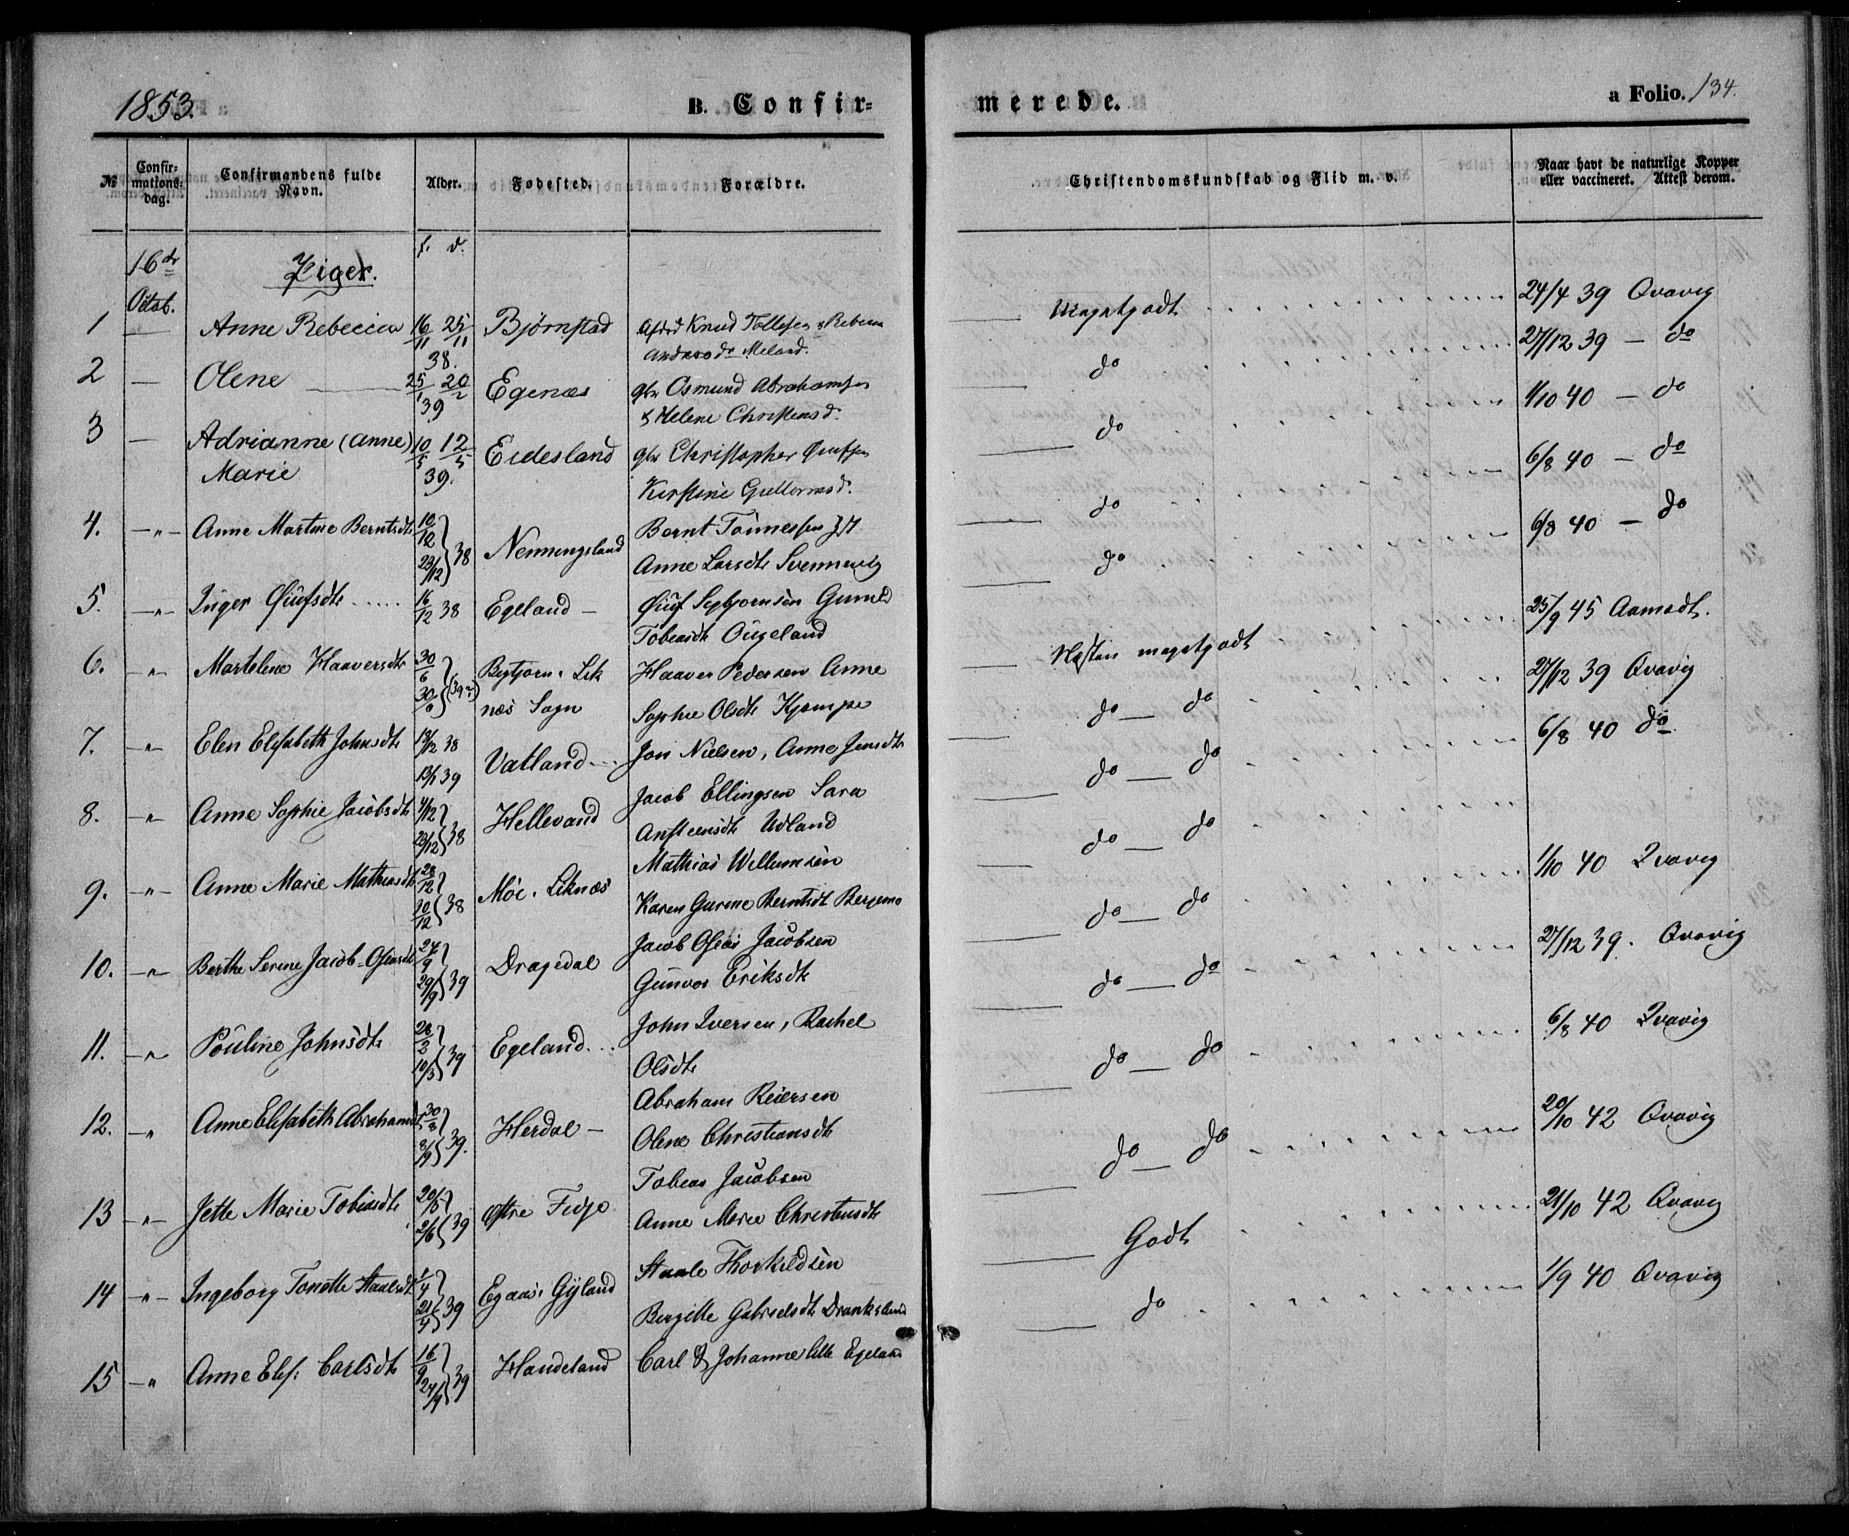 1853.
B. Confir=
merede.
a Folio. 134.
No
Confir-
mations-
dag.
Confirmandens fulde
Navn.
Alder.
Fødested.
Forældre.
Christendomskundskab og Flid m. v.
Naar havt de naturlige Kopper
eller vaccineret. Attest derom.
16de
Octob.
Piger.
f. d.
1 — Anne Rebecca 16/11 25/11 38. Bjørnstad
Knud Tollefsen
Meland.
Megetgodt 24/4 39 Qvavig
2 — Olene 25/1 20/2 39 Egenæs
Osmund Abrahamsen
& Helene Christensd.
do 27/12 39 — do
3 — Adrianne (Anne)
Marie
10/5 12/5 39. Eidesland
Christopher
Kirstine Guttormsd.
do 1/10 40 — do
4. —"— Anne Martine Berntsdt 10/12 23/12 38 Nenningsland
Bernt Tönnessen
Anne Larsdt Svennevig
do 6/8 40 — do
5. —"— Inger Öiufsdt ...... 16/12 38 Egeland —
Öiuf Sigbjornsen Gunild
Tobiasdt Öugeland
do. 6/8 40 — do
6. " Martelene Haaversdt 30/6 30/6 (39?)
Lik
næs Sogn
Haaver Pedersen Anne
Sophie Olsdt Kjempe
Næsten megetgodt 25/9 45 Aamodt.
7. " Elen Elisabeth Johnsdt 13/12 38
13/1 39
Vatland
Jon Nielsen, Anne Jensdt
do — do 27/12 39 Qvavig
8. —"— Anne Sophie Jacobsdt 4/12 23/12 38 Hellevand
Jacob Ellingsen Sara
Ansteensdt Udland
do — do 6/8 40 do
9. —"— Anne Marie Mathiasdt 28/12 10/12 38 Möe. Liknæs
Mathias Willumsen
Karen Gurine Berntsdt
do — do
10. —"— Berthe Serine Jacob-Oseasdt 24/9 29/9 39 Dragedal
Jacob Oseas Jacobsen
Gunvor Eriksdt
do — do 1/10 40 Qvavig
11. —"— Pouline Johnsdt 28/2 10/3 39 Egeland
John Iversen, Rachel
Olsdt
do — do 27/12 39. Qvavig
12. —"— Anne Elisabeth Abrahamsdt 39. Herdal —
Abraham Reiersen
Olene Christiansdt
do — do 6/8 40 Qvavig
13 —"— Jette Marie Tobiasdt 20/5 2/6 39 Østre Fidje
Tobias Jacobsen
Anne Marie Christensdt
do — do 20/10 42 Qvavig
14 —"— Ingeborg Tonette Staalesdt 1/4 21/4 39 Gyland
Staale Thorkildsen
Birgitte Gabrielsdt Drankeland
Godt 21/10 42 Qvavig
15 —"— Anne Elis: Carlsdt 16/9 24/9 39 Handeland
Carl & Johanne lille Egeland
do 1/9 40 Qvavig